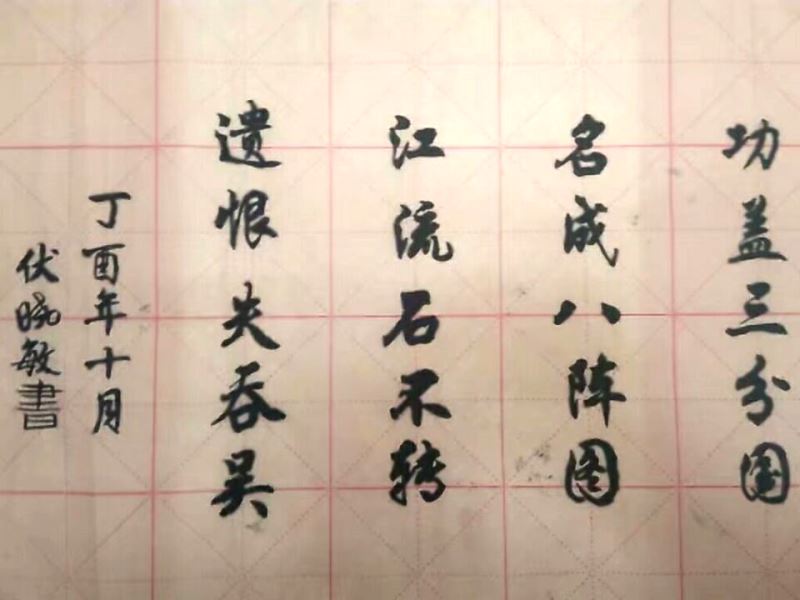 功盖三分国
名成八阵图
江流石不转
遗恨失吞吴
丁酉年十月
伏晓敏書